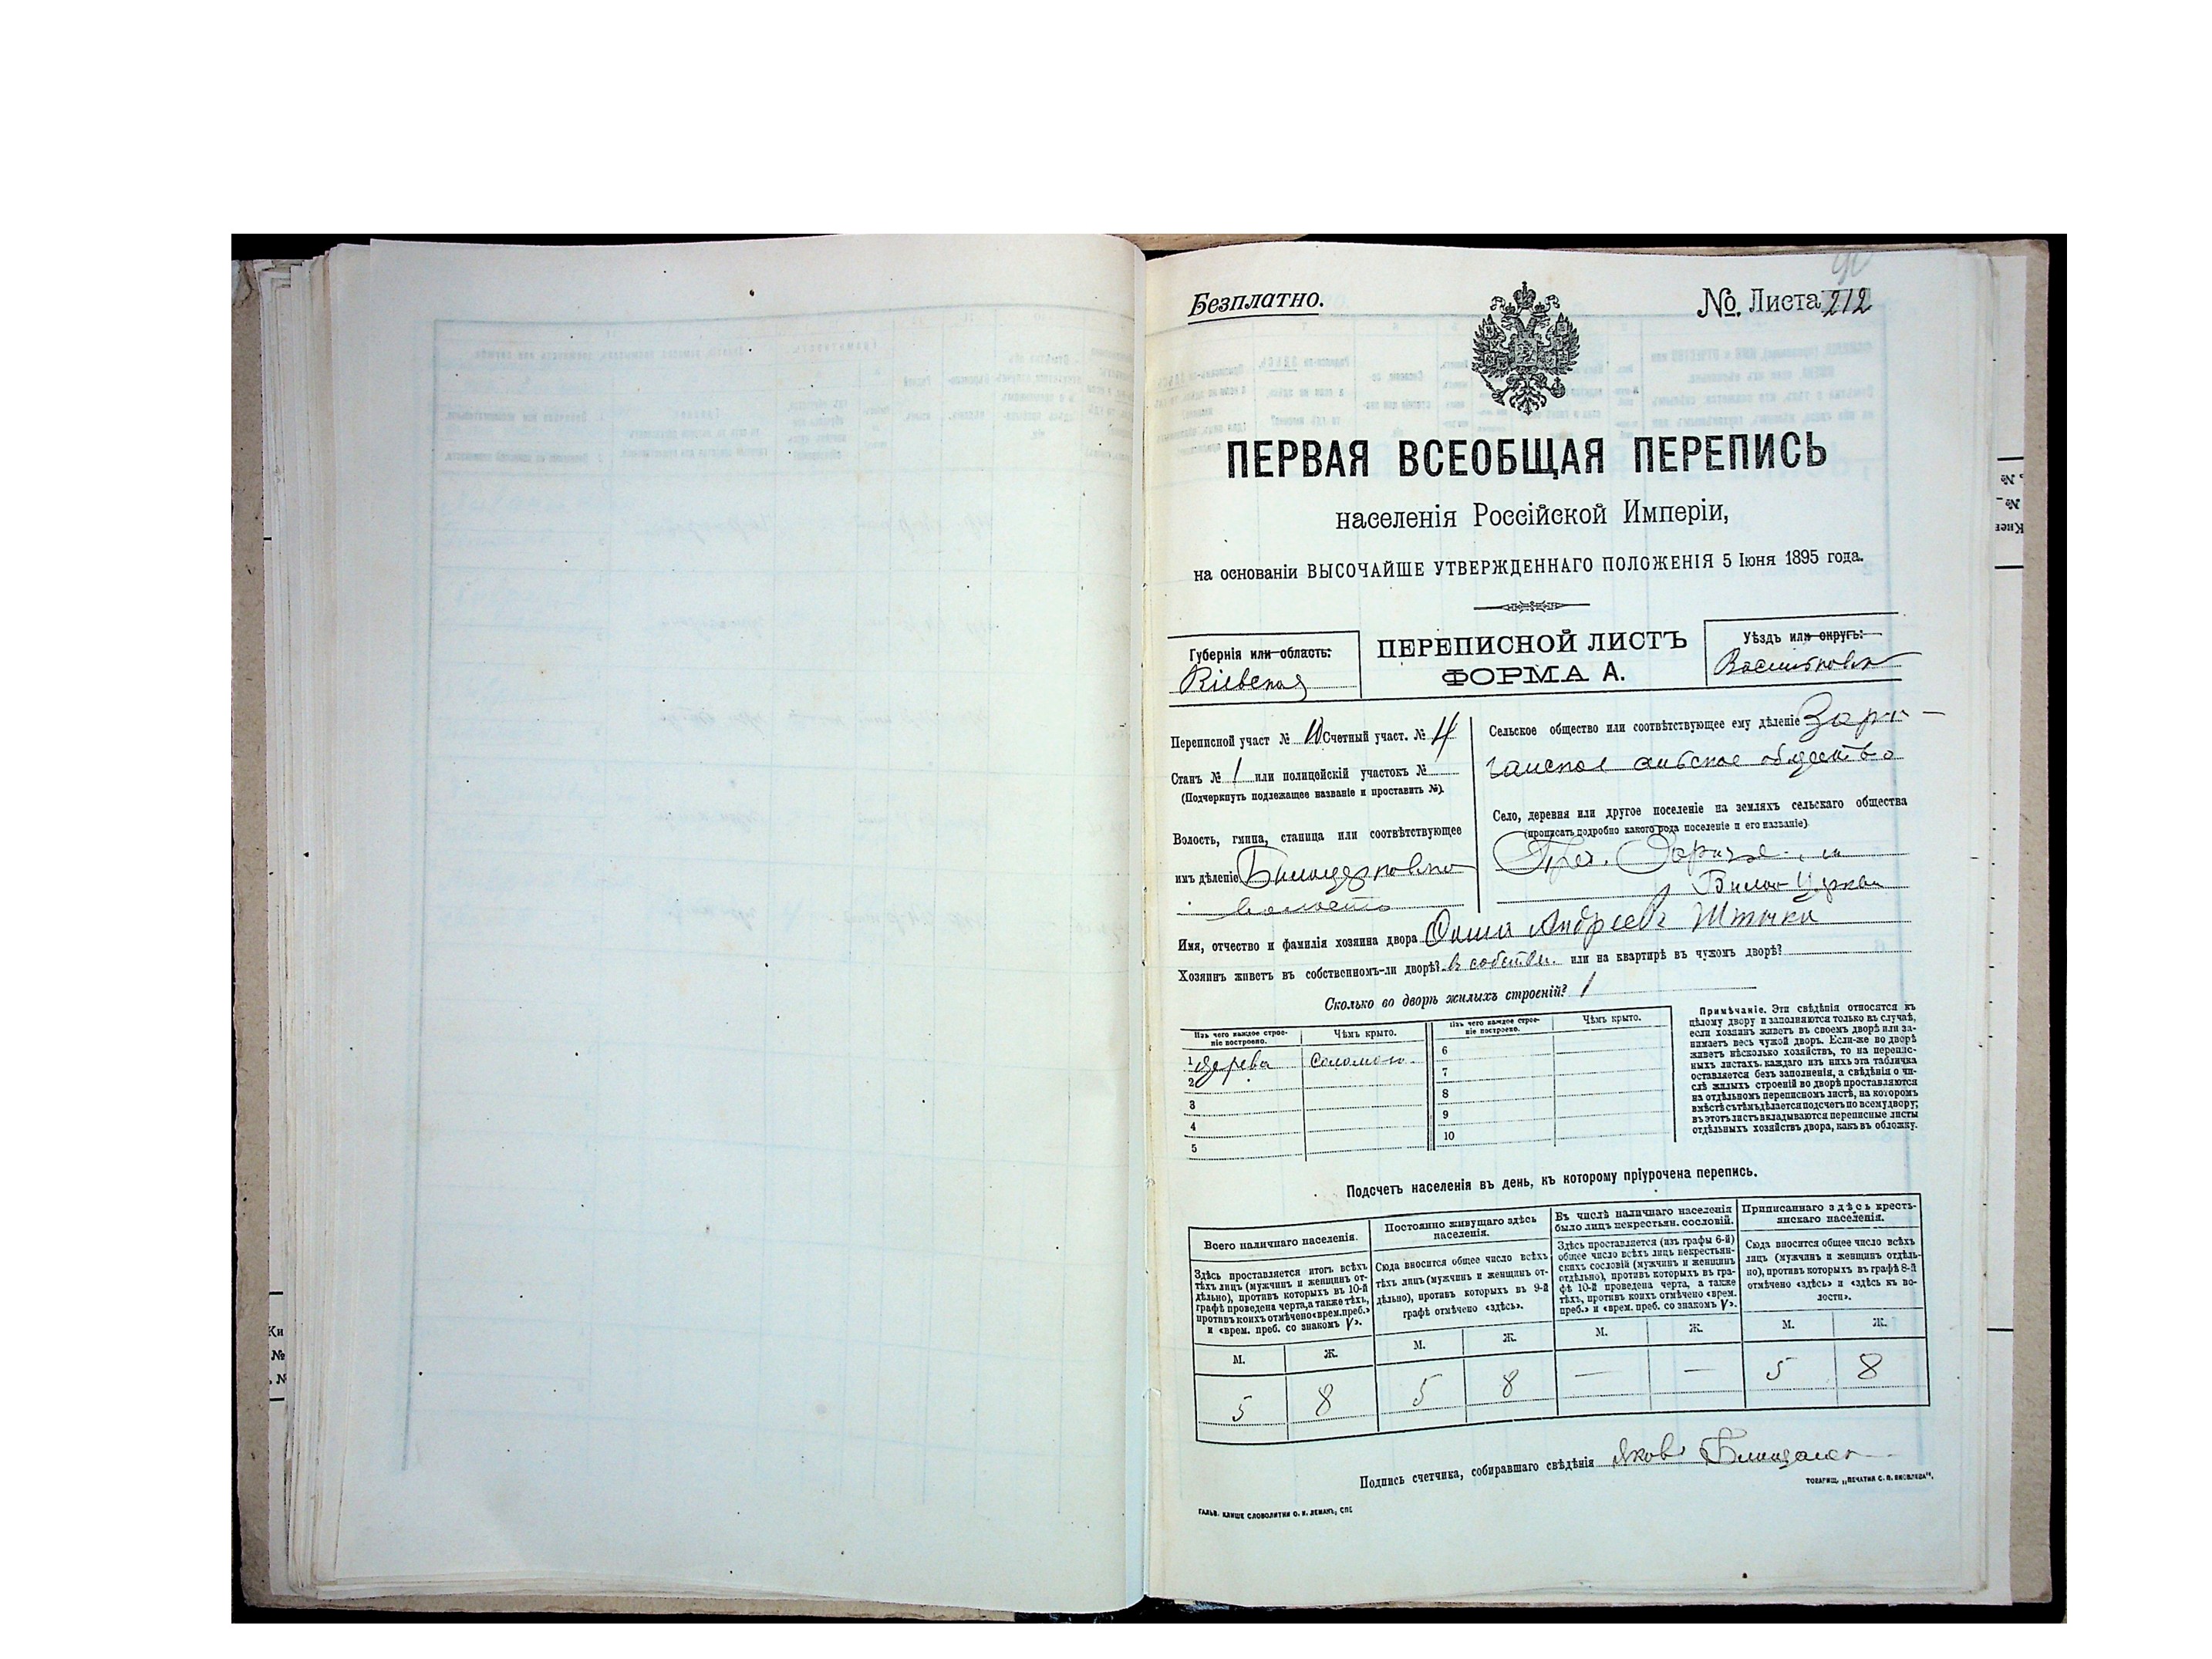 Безплатно.
№ Листа 212
ПЕРВАЯ ВСЕОБЩАЯ ПЕРЕПИСЬ
населенія Россійской Имперіи,
на основаніи ВЫСОЧАЙШЕ УТВЕРЖДЕННАГО ПОЛОЖЕНІЯ 5 Іюня 1895 года.
Губернія или область:
Кіевская
ПЕРЕПИСНОЙ ЛИСТЪ
ФОРМА А.
Уѣздъ или округъ:
Переписной участ № 10 Счетный участ. № 4
Станъ № 1 или полицейскій участокъ №
(Подчеркнуть подлежащее названіе и проставить №).
Волость, гмина, станица или соотвѣтствующее
имъ дѣленіе
Сельское общество или соотвѣтствующее ему дѣленіе Заре-
общество
Село, деревня или другое поселеніе на земляхъ сельскаго общества
(прописать подробно какого рода поселеніе и его названіе)
Имя, отчество и фамилія хозяина двора
Хозяинъ живетъ въ собственномъ-ли дворѣ? в собствен. или на квартирѣ въ чужомъ дворѣ?
Сколько во дворѣ жилыхъ строеній? 1
Изъ чего каждое строе-
ніе построено.
Чѣмъ крыто.
Изъ чего каждое строе-
ніе построено.
Чѣмъ крыто.
1 дерева соломою
2
3
4
5
6
7
8
9
10
Примѣчаніе. Эти свѣдѣнія относятся къ
цѣлому двору и заполняются только въ случаѣ,
если хозяинъ живетъ въ своемъ дворѣ или за-
нимаетъ весь чужой дворъ. Если-же во дворѣ
живетъ нѣсколько хозяйствъ, то на перепис-
ныхъ листахъ каждаго изъ нихъ эта табличка
оставляется безъ заполненія, а свѣдѣнія о чи-
слѣ жилыхъ строеній во дворѣ проставляются
на отдѣльномъ переписномъ листѣ, на которомъ
вмѣстѣ съ тѣмъ дѣлается подсчетъ по всему двору;
въ этотъ листъ вкладываются переписные листы
отдѣльныхъ хозяйствъ двора, какъ въ обложку.
Подсчетъ населенія въ день, къ которому пріурочена перепись.
Всего наличнаго населенія.
Здѣсь проставляется итогъ всѣхъ
тѣхъ лицъ (мужчинъ и женщинъ от-
дѣльно), противъ которыхъ въ 10-й
графѣ проведена черта, а также тѣхъ,
противъ коихъ отмѣчено «врем. преб.»
и «врем. преб. со знакомъ V».
Постоянно живущаго здѣсь
населенія.
Сюда вносится общее число всѣхъ
тѣхъ лицъ (мужчинъ и женщинъ от-
дѣльно), противъ которыхъ въ 9-й
графѣ отмѣчено «здѣсь».
Въ числѣ наличнаго населенія
было лицъ некрестьян. сословій.
Здѣсь проставляется (изъ графы 6-й)
общее число всѣхъ лицъ некрестьян-
скихъ сословій (мужчинъ и женщинъ
отдѣльно), противъ которыхъ въ гра-
фѣ 10-й проведена черта, а также
тѣхъ, противъ коихъ отмѣчено «врем.
преб.» и «врем. преб. со знакомъ V».
Приписаннаго здѣсь кресть-
янскаго населенія.
Сюда вносится общее число всѣхъ
лицъ (мужчинъ и женщинъ отдѣль-
но), противъ которыхъ въ графѣ 8-й
отмѣчено «здѣсь» и «здѣсь къ во-
лости».
М. Ж. М. Ж. М. Ж. М. Ж.
5 8 5 8 — — 5 8
Подпись счетчика, собиравшаго свѣдѣнія Яковъ
ГАЛЬВ. КЛИШЕ СЛОВОЛИТНИ О. И. ЛЕМАНЪ, СПБ
ТОВАРИЩ. „ПЕЧАТНЯ С. П. ЯКОВЛЕВА".